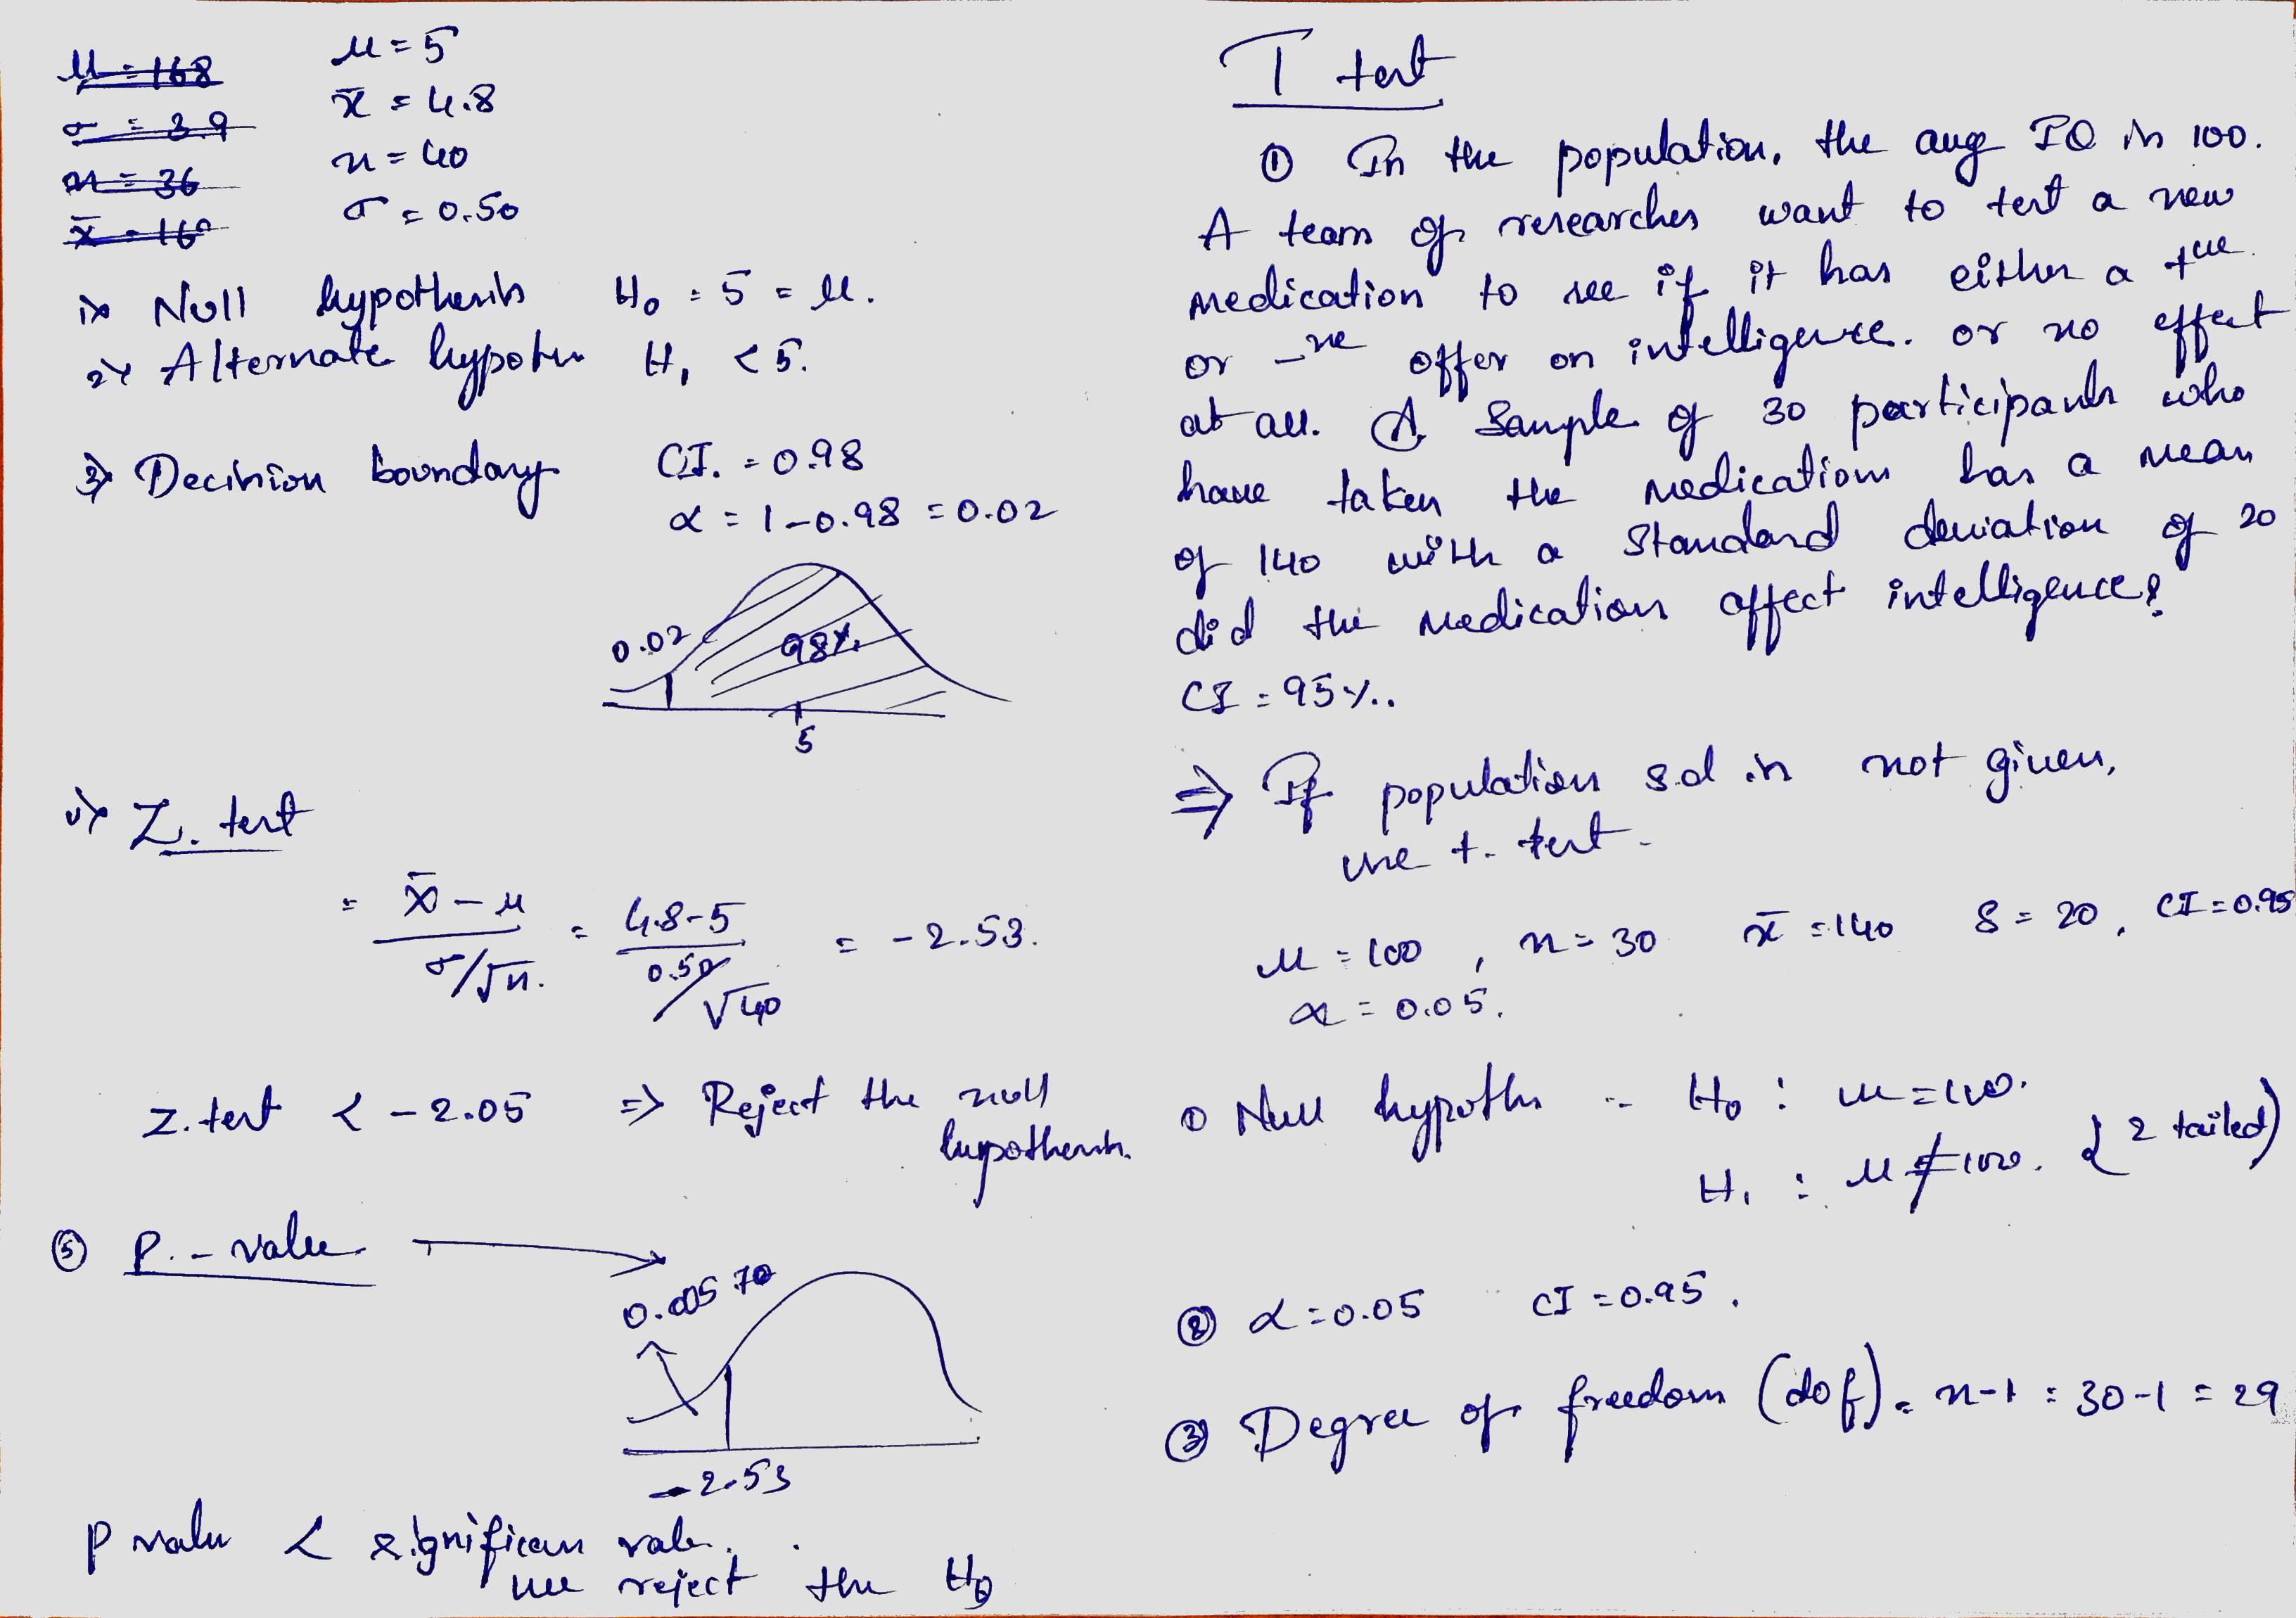 μ = 168
σ = 3.9
n = 36
x̄ = 160
μ = 5
x̄ = 4.8
n = 40
σ = 0.50
1> Null hypothesis H₀ = 5 = μ.
2> Alternate hypothe H₁ < 5.
3> Decision boundary C.I. = 0.98
α = 1 - 0.98 = 0.02
0.02
98%
5
Z. test
= x̄ - μ / σ/√n. = 4.8-5 / 0.50/√40 = -2.53.
Z. test < -2.05 ⇒ Reject the null
hypothesis.
⑤ P. - value
0.00570
-2.53
P value < significan value.
we reject the H₀
T test
① In the population, the avg IQ is 100.
A team of researches want to test a new
medication to see if it has either a +ve
or -ve offer on intelligence. or no effect
at all. A Sample of 30 participants who
have taken the medication has a mean
of 140 with a Standard deviation of 20
did the medication affect intelligence?
CI = 95%.
⇒ If population s.d is not given,
use t. test.
μ = 100, n = 30 x̄ = 140 S = 20, CI = 0.95
α = 0.05.
① Null hypoths - H₀ : μ = 100.
H₁ : μ ≠ 100. {2 tailed)
② α = 0.05 CI = 0.95.
③ Degree of freedom (dof) = n-1 = 30-1 = 29